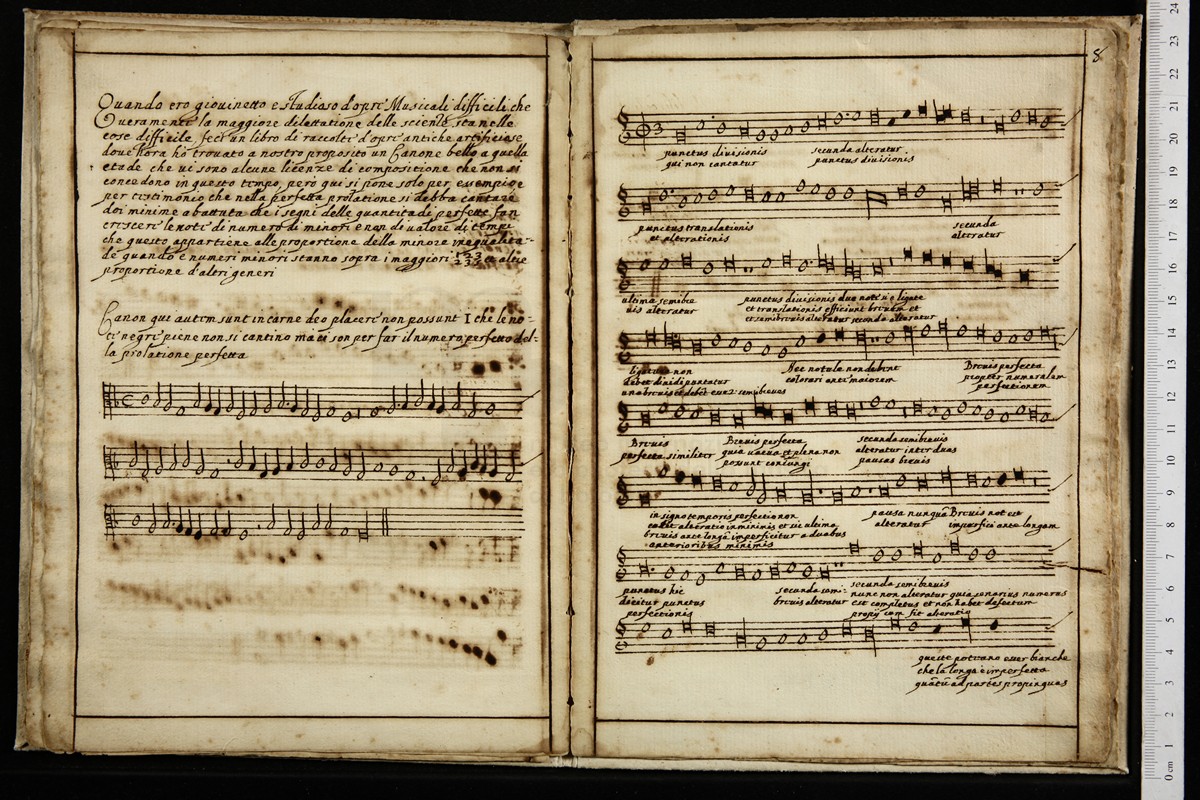 Quando ero giouinetto e studioso d'opre Musicali difficili, che
Veramente la maggiore dilettatione delle scienze sta nelle
cose difficile, feci un libro di raccolti d'opre antiche artificiose
doue hora hò trouato a nostro proposito un Canone bello a quella
etade che ui sono alcune licenze di compositione che non si
concedono in questo tempo, però qui si pone solo per essempio e
per testimonio che nella perfetta prolatione si debba cantare
doi minime a battuta che i segni delle quantitadi perfette fan
crescere le note di numero di minori e non di ualore di tempi
che questo appartiene alle proportione della minore inequalita-
de quando e numeri minori stanno sopra i maggiori 1 2 3 et altre
2 3
proportione d'altri generi
Canon qui autem sunt in carne deo placere non possunt I che le no-
te negre piene non si cantino ma ui son per far il numero perfetto del-
la prolatione perfetta
8
3
punctus diuisionis
qui non cantatur
secunda alteratur
punctus diuisionis
punctus translationis
et alterationis
secunda
alteratur
ultima semibre
uis alteratur
punctus diuisionis due note no ligate
et translationis efficiunt breuem et
et semibreuis alteratur secunda alteratur
ligatura non
debet diuidi
una breuis et debet semibreues
Hec notule non debent
colorari ante maiorem
Breuis perfecta
propter numeralem
perfectionem
Breuis
perfecta similiter
Breuis perfecta
quia uacua et plena non
possunt coniungi
secunda semibreuis
alteratur inter duas
pausas breuis
in signo temporis perfecti non
cadit alteratio in minimis et sic ultima
breuis ante longa imperficitur a duabus
anterioribus minimis
pausa nunquã
alteratur
Breuis not est
imperfici ante longam
punctus hic
dicitur punctus
perfectionis
secunda semi-
breuis alteratur
secunda semibreuis
nunc non alteratur quia senarius numerus
est completus et non habet defectum
fit alteratio
queste potriano esser bianche
che la longa è imperfetta
quãtũ ad partes propinquas
24
23
22
21
20
19
18
17
16
15
14
13
12
11
10
9
8
7
6
5
4
3
2
1
0 cm